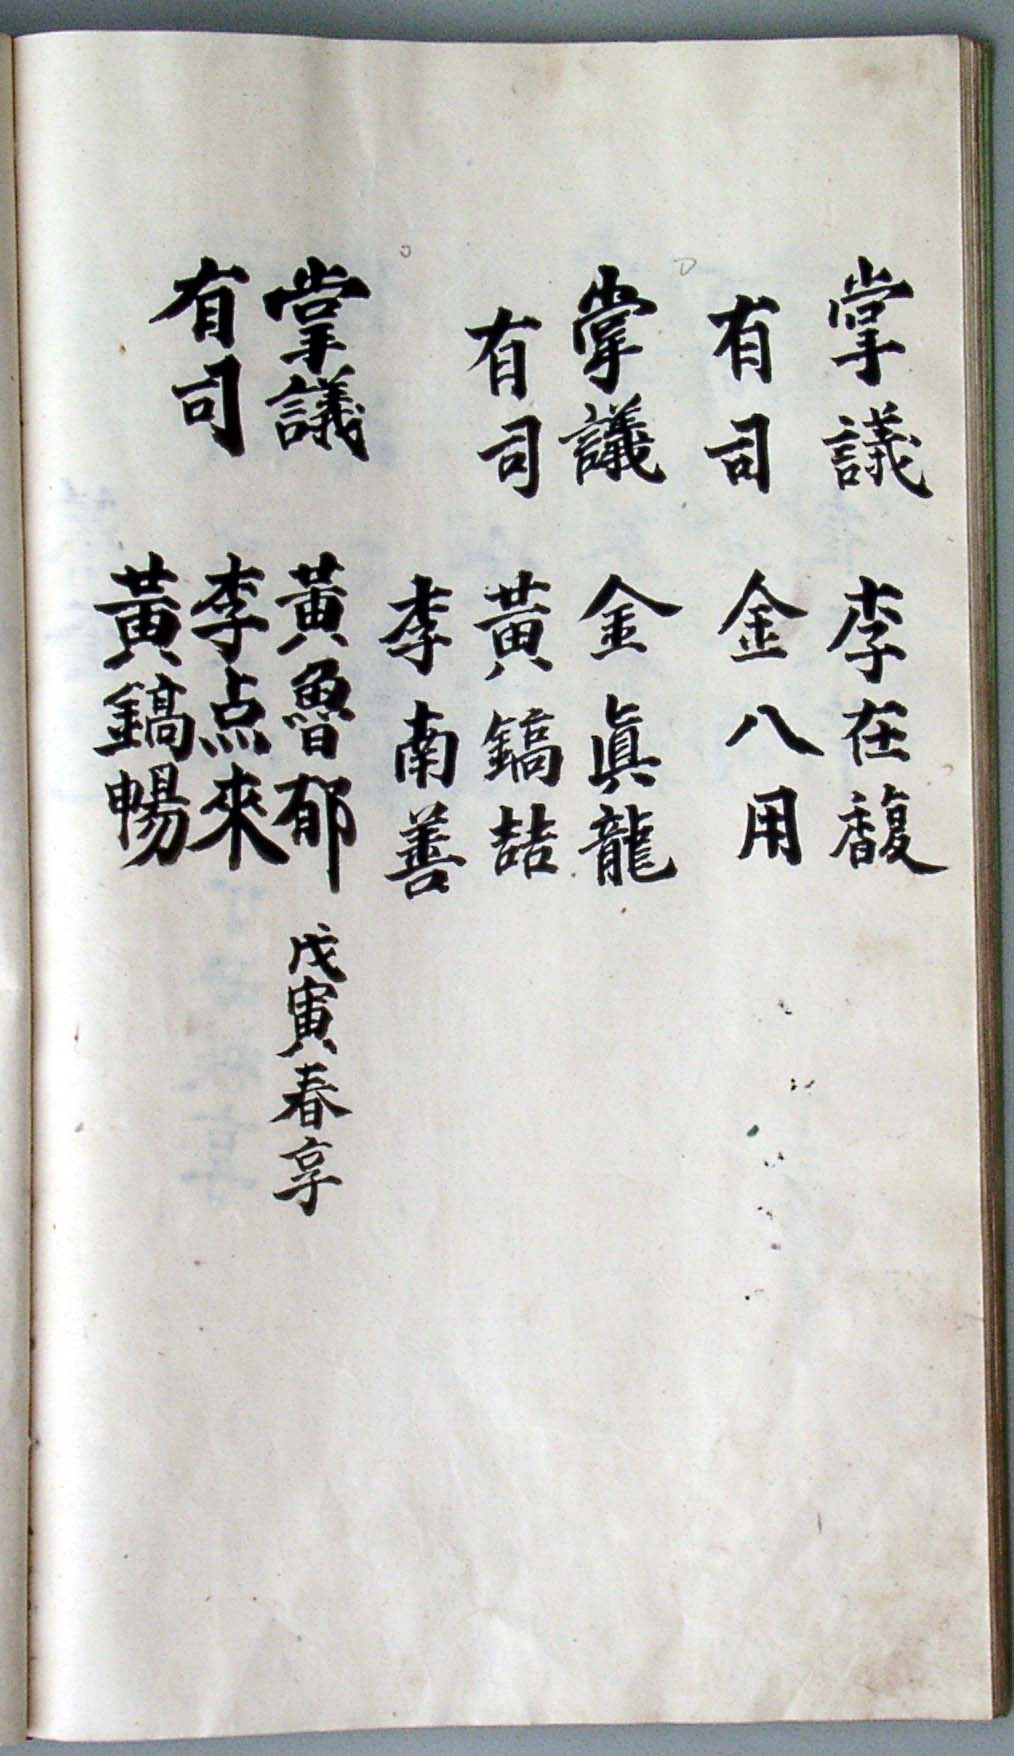 掌議 李在馥
有司 金八用
掌議 金眞龍
有司 黃鎬喆
李南善
掌議 黃魯郁 戊寅春享
有司 李点來
黃鎬暢